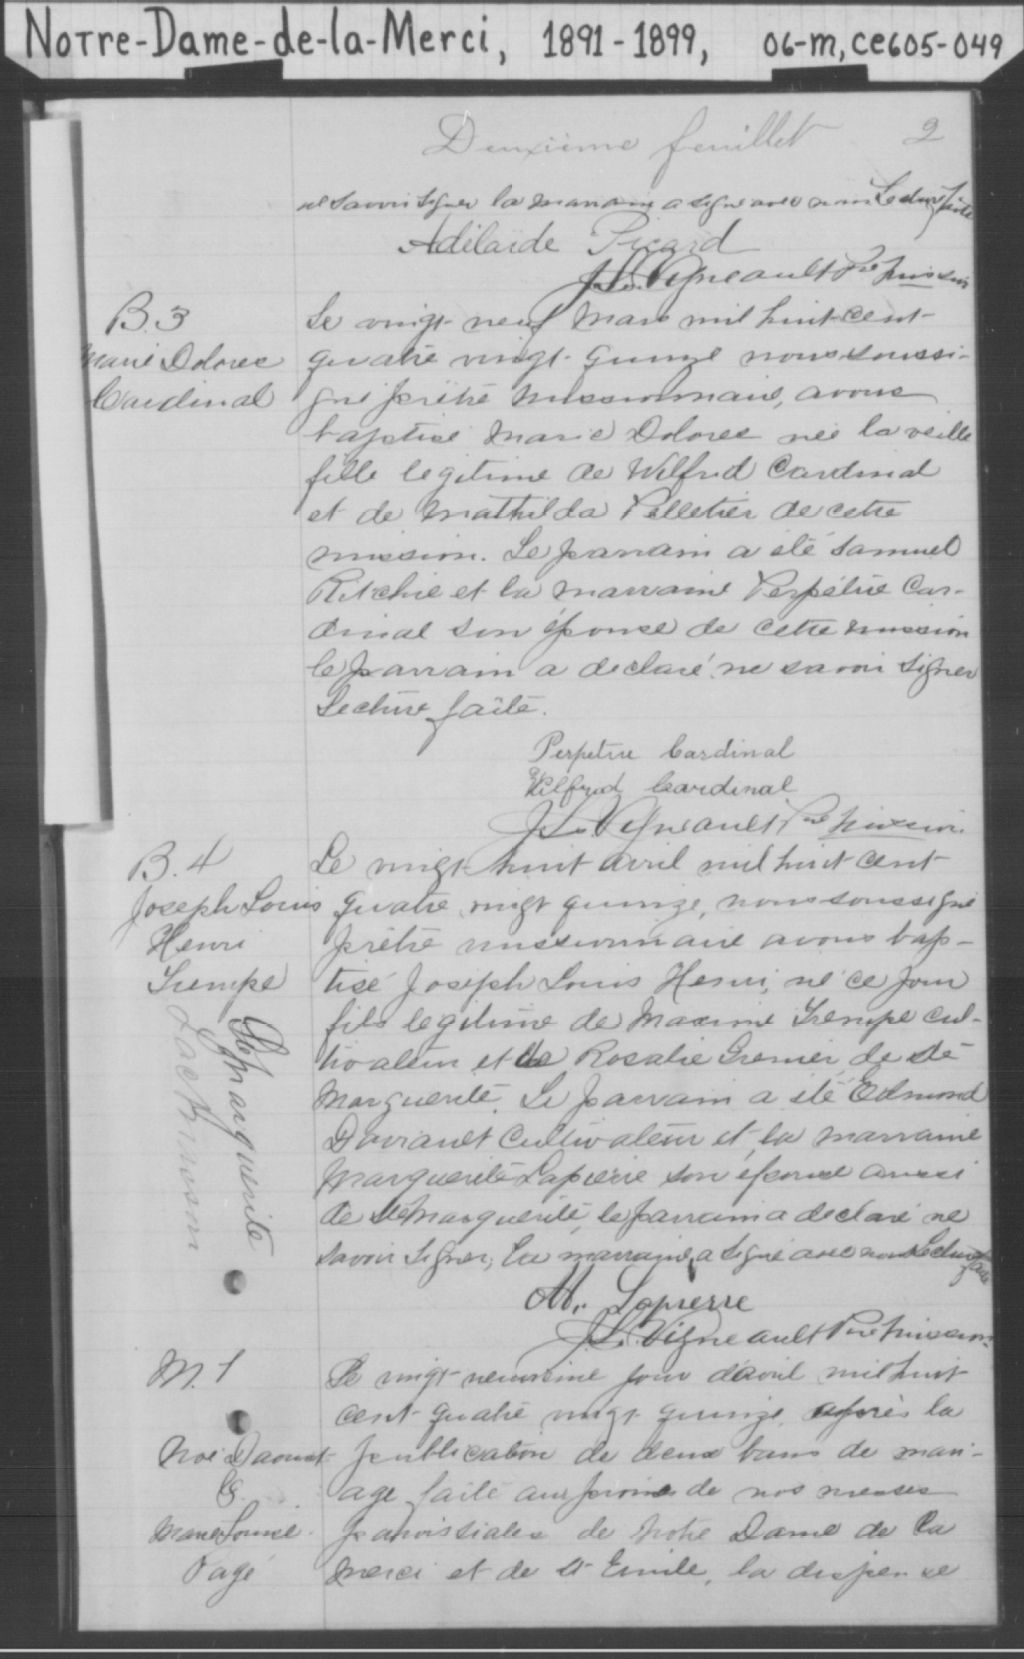 Notre-Dame-de-la-Merci, 1891-1899, 06-M, CE605-049
Deuxième feuillet 2
ne savoir signer la marraine a signé avec nous Lecture faite
Adélaïde Picard
J. L. Vigneault Ptre
B. 3
Marie Dolores
Cardinal
Le vingt-neuf Mars mil huit cent
quatre vingt-quinze nous soussi-
gné prêtre missionnaire, avons
baptisé Marie Dolores née la veille
fille legitime de Wilfrid Cardinal
et de Mathilda Pelletier de cette
mission. Le parrain a été Samuel
Ritchie et la marraine Perpétue Car-
dinal son épouse de cette mission
le parrain a declaré ne savoir signer
Lecture faite.
Perpetue Cardinal
Wilfrid Cardinal
J. L. Vigneault Ptre
B. 4
Joseph Louis
Henri
Trempe
Ste Marguerite
Le vingt-huit avril mil huit cent
quatre vingt quinze, nous soussigné
prêtre missionnaire avons bap-
tisé Joseph Louis Henri, né ce jour
fils legitime de Maxime Trempe cul-
tivateur et de Rosalie Grenier de Ste
Marguerite. Le parrain a été Edmond
cultivateur et la marraine
Marguerite Lapierre son épouse aussi
de Ste Marguerite, le parrain a declaré ne
savoir signer, la marraine a signé avec nous Lecture faite
M. Lapierre
J. L. Vigneault Ptre
M. 1
Noé Daoust
&
Marie Louise
Pagé
Le vingt-neuvième jour d'avril mil huit
cent quatre vingt quinze, après la
publication de deux bans de mari-
age faite aux prones de nos messes
paroissiales de Notre Dame de la
Merci et de St Emile, la dispense